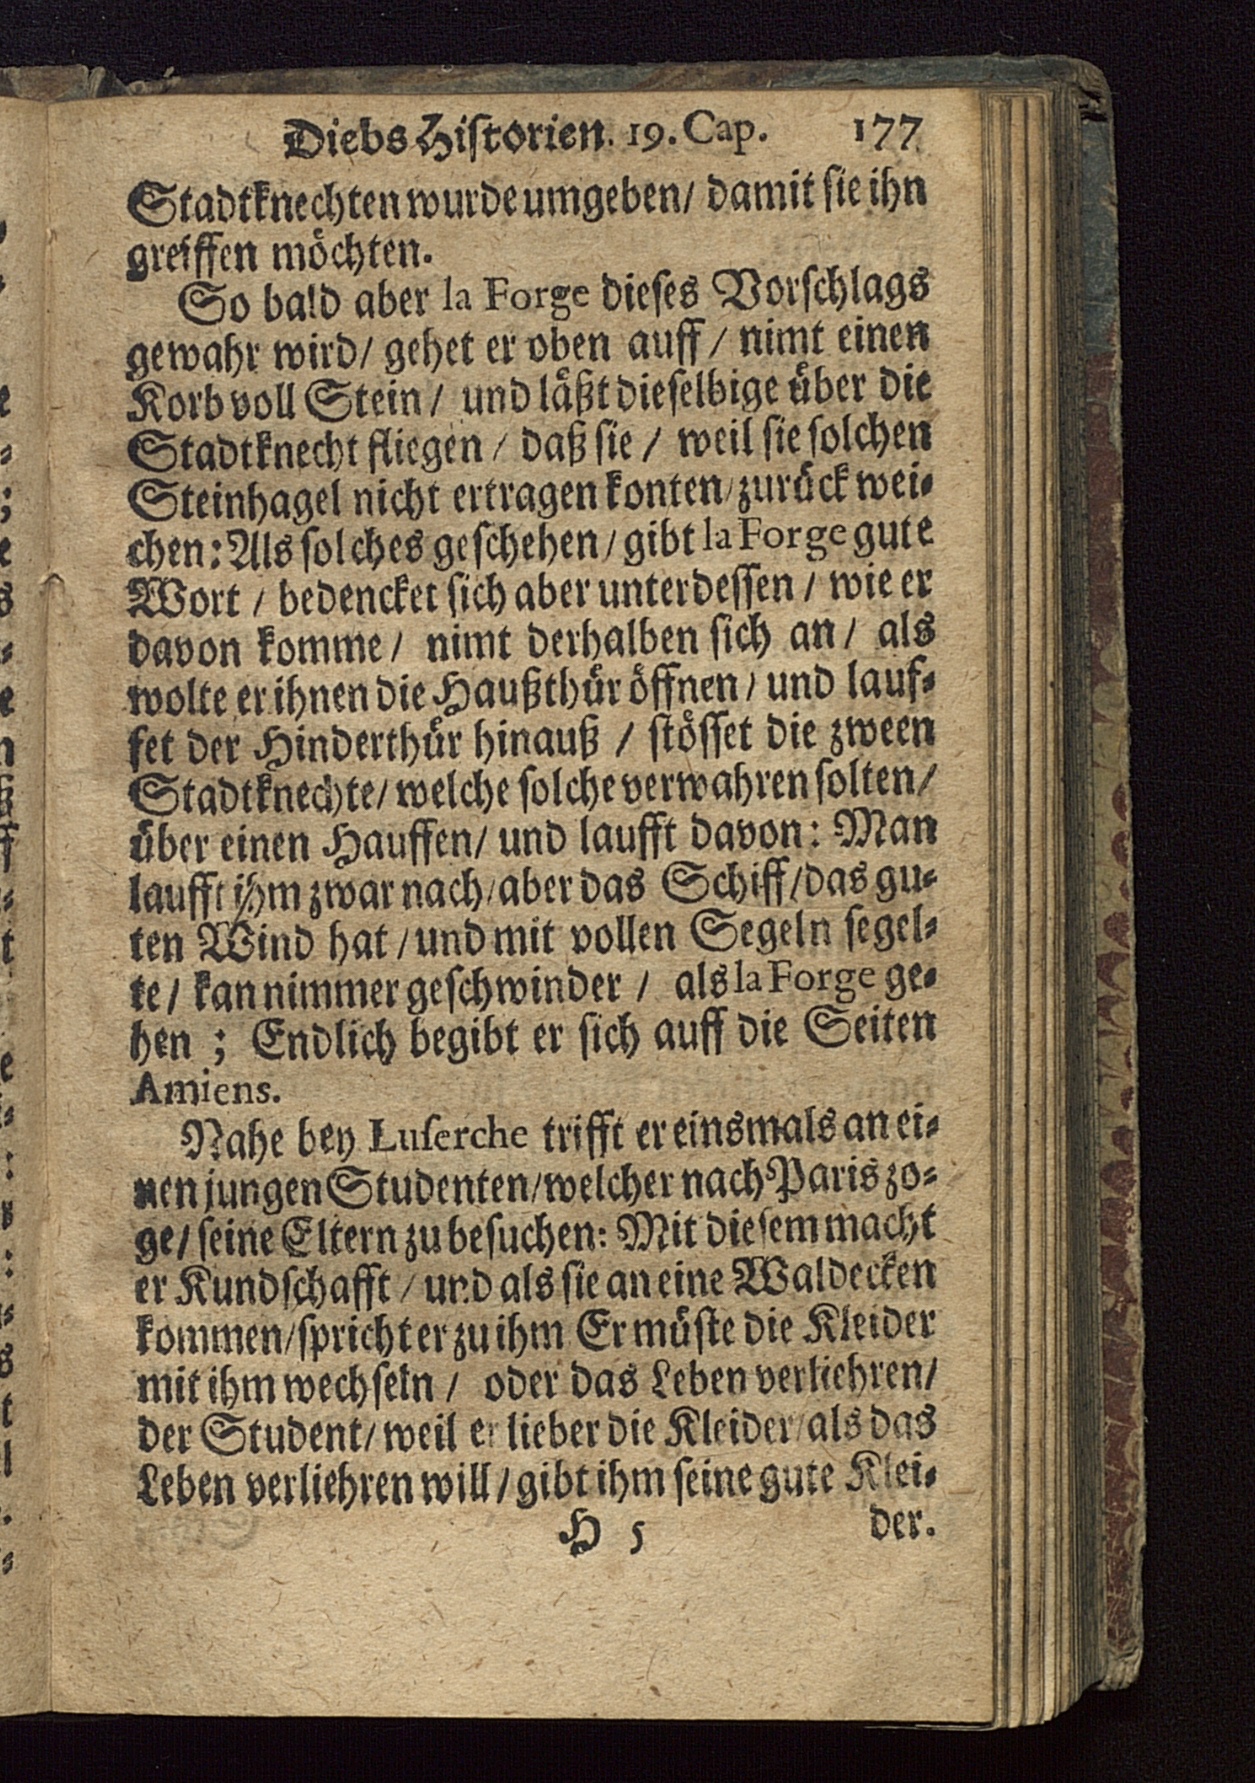 Diebs Historien. 19. Cap. 177
Stadtknechten wurde umgeben/ damit sie ihn
greiffen möchten.
So bald aber la Forge dieses Vorschlags
gewahr wird/ gehet er oben auff/ nimt einen
Korb voll Stein/ und läßt dieselbige über die
Stadtknecht fliegen/ daß sie/ weil sie solchen
Steinhagel nicht ertragen konten/ zurück wei-
chen: Als solches geschehen/ gibt la Forge gute
Wort/ bedencket sich aber unterdessen/ wie er
davon komme/ nimt derhalben sich an/ als
wolte er ihnen die Haußthür öffnen/ und lauf-
fet der Hinderthür hinauß/ stösset die zween
Stadtknechte/ welche solche verwahren solten/
über einen Hauffen/ und laufft davon: Man
laufft ihm zwar nach/ aber das Schiff/ das gu-
ten Wind hat/ und mit vollen Segeln segel-
te/ kan nimmer geschwinder/ als la Forge ge-
hen; Endlich begibt er sich auff die Seiten
Amiens.
Nahe bey Luserche trifft er einsmals an ei-
nen jungen Studenten/ welcher nach Paris zo-
ge/ seine Eltern zu besuchen: Mit diesem macht
er Kundschafft/ und als sie an eine Waldecken
kommen/ spricht er zu ihm Er müste die Kleider
mit ihm wechseln/ oder das Leben verliehren/
der Student/ weil er lieber die Kleider/ als das
Leben verliehren will/ gibt ihm seine gute Klei-
H 5 der.